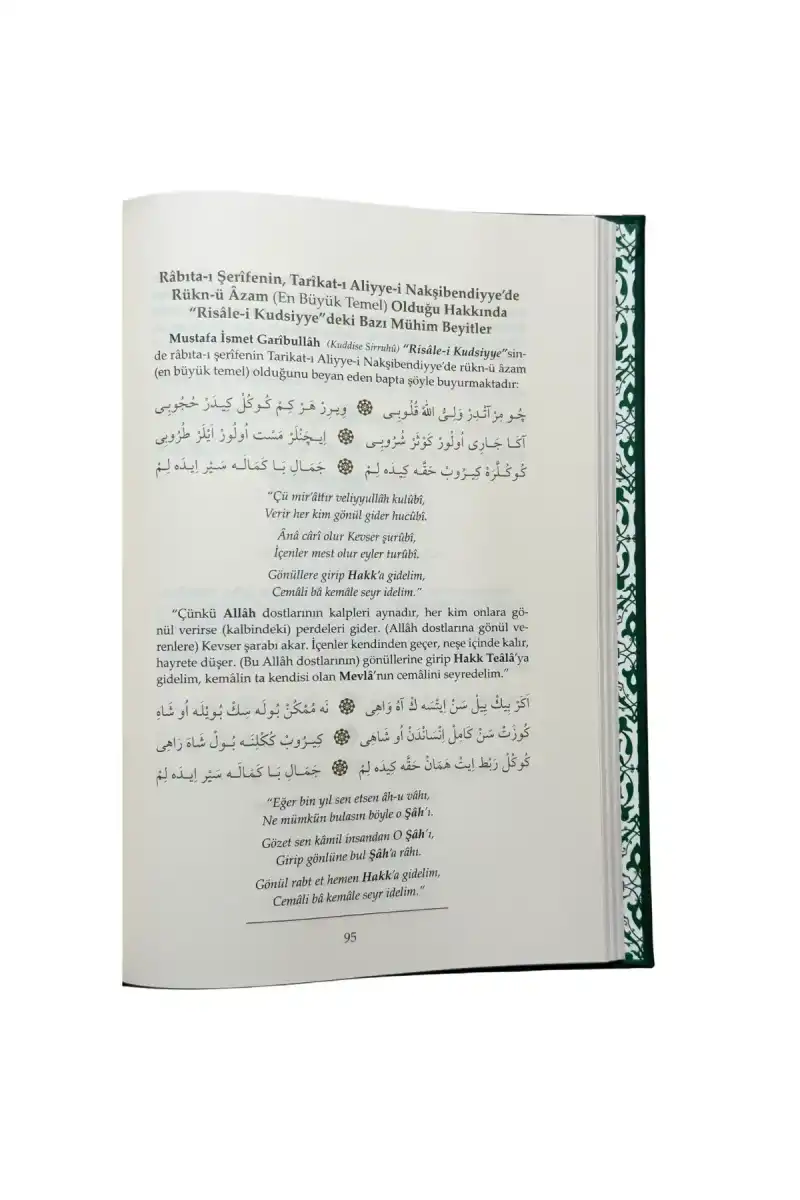 Râbıta-ı Şerîfenin, Tarîkat-ı Aliyye-i Nakşibendiyye’de
Rükn-ü Âzam (En Büyük Temel) Olduğu Hakkında
“Risâle-i Kudsiyye”deki Bazı Mühim Beyitler
Mustafa İsmet Garîbullâh (Kuddise Sirruhû) “Risâle-i Kudsiyye”sin-
de râbıta-ı şerîfenin Tarikat-ı Aliyye-i Nakşibendiyye’de rükn-ü âzam
(en büyük temel) olduğunu beyan eden bapta şöyle buyurmaktadır:
چُو مِرْآتْدِرْ وَلِيُّ اللّٰهْ قُلُوبِى ❁ وِيرِرْ هَرْ كِمْ كُوكُلْ كِيدَرْ حُجُوبِى
آكَا جَارِى أُولُورْ كَوْثَرْ شُرُوبِى ❁ اِيچَنْلَرْ مَسْت اُولُورْ اَيْلَرْ طُرُوبِى
كُوكُلَرَهْ كِيرُوبْ حَقَّه كِيدَه لِمْ ❁ جَمَالِ بَا كَمَالَه سَيْر اِيدَه لِمْ
“Çü mir’âttır veliyyullâh kulûbî,
Verir her kim gönül gider hucûbî.
Ânâ cârî olur Kevser şurûbî,
İçenler mest olur eyler turûbî.
Gönüllere girip Hakk’a gidelim,
Cemâli bâ kemâle seyr idelim.”
“Çünkü Allâh dostlarının kalpleri aynadır, her kim onlara gö-
nül verirse (kalbindeki) perdeleri gider. (Allâh dostlarına gönül ve-
renlere) Kevser şarabı akar. İçenler kendinden geçer, neşe içinde kalır,
hayrete düşer. (Bu Allâh dostlarının) gönüllerine girip Hakk Teâlâ’ya
gidelim, kemâlin ta kendisi olan Mevlâ’nın cemâlini seyredelim.”
اَكَرْ بِيكْ يِيلْ سَنْ اِيتْسَه كْ آهُ وَاهِى ❁ نَه مُمْكُنْ بُولَه سِكْ بُويْلَه اُو شَاهِ
كُوزَتْ سَنْ كَامِلْ اِنْسَانْدَنْ اُو شَاهِى ❁ كِيرُوبْ كُكْلِنَه بُولْ شَاهَ رَاهِى
كُوكُلْ رَبْط اِيتْ هَمَانْ حَقَّه كِيدَه لِمْ ❁ جَمَالِ بَا كَمَالَه سَيْر اِيدَه لِمْ
“Eğer bin yıl sen etsen âh-u vâhı,
Ne mümkün bulasın böyle o Şâh’ı.
Gözet sen kâmil insandan O Şâh’ı,
Girip gönlüne bul Şâh’a râhı.
Gönül rabt et hemen Hakk’a gidelim,
Cemâli bâ kemâle seyr idelim.”
95